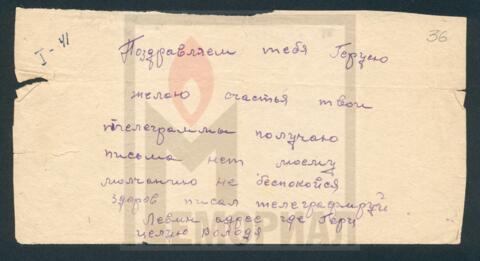 I-41
36
Поздравляем тебя Герцею
желаю счастья твои
телеграммы получаю
письма нет моему
молчанию не беспокойся
здоров писал телеграфируй
Левин адрес где Герц
целую Володя
МЕМОРИАЛ